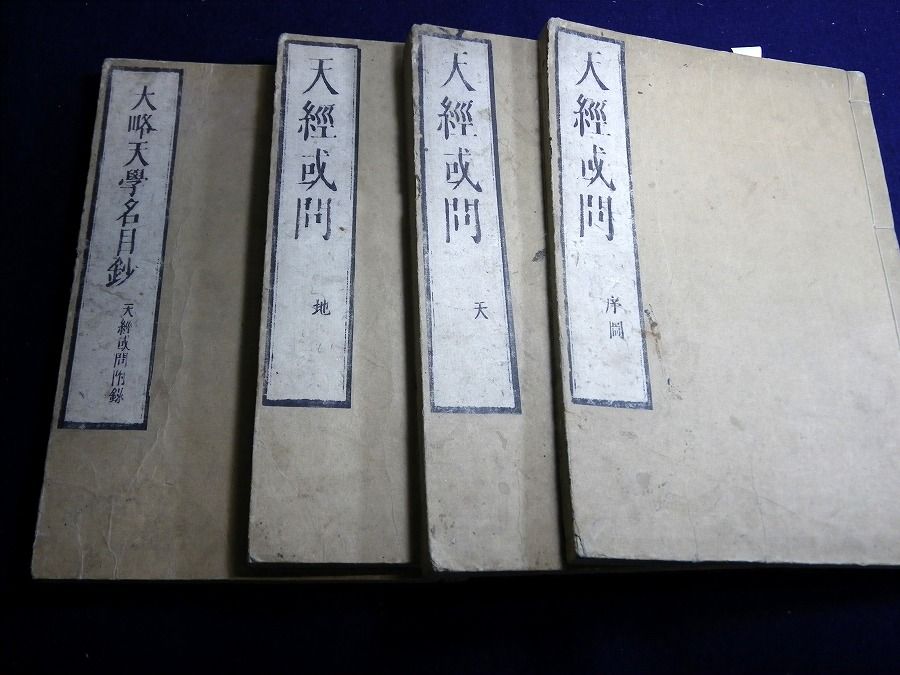 天經或問
序圖
天經或問
天
天經或問
地
大略天學名目鈔
天經或問附錄